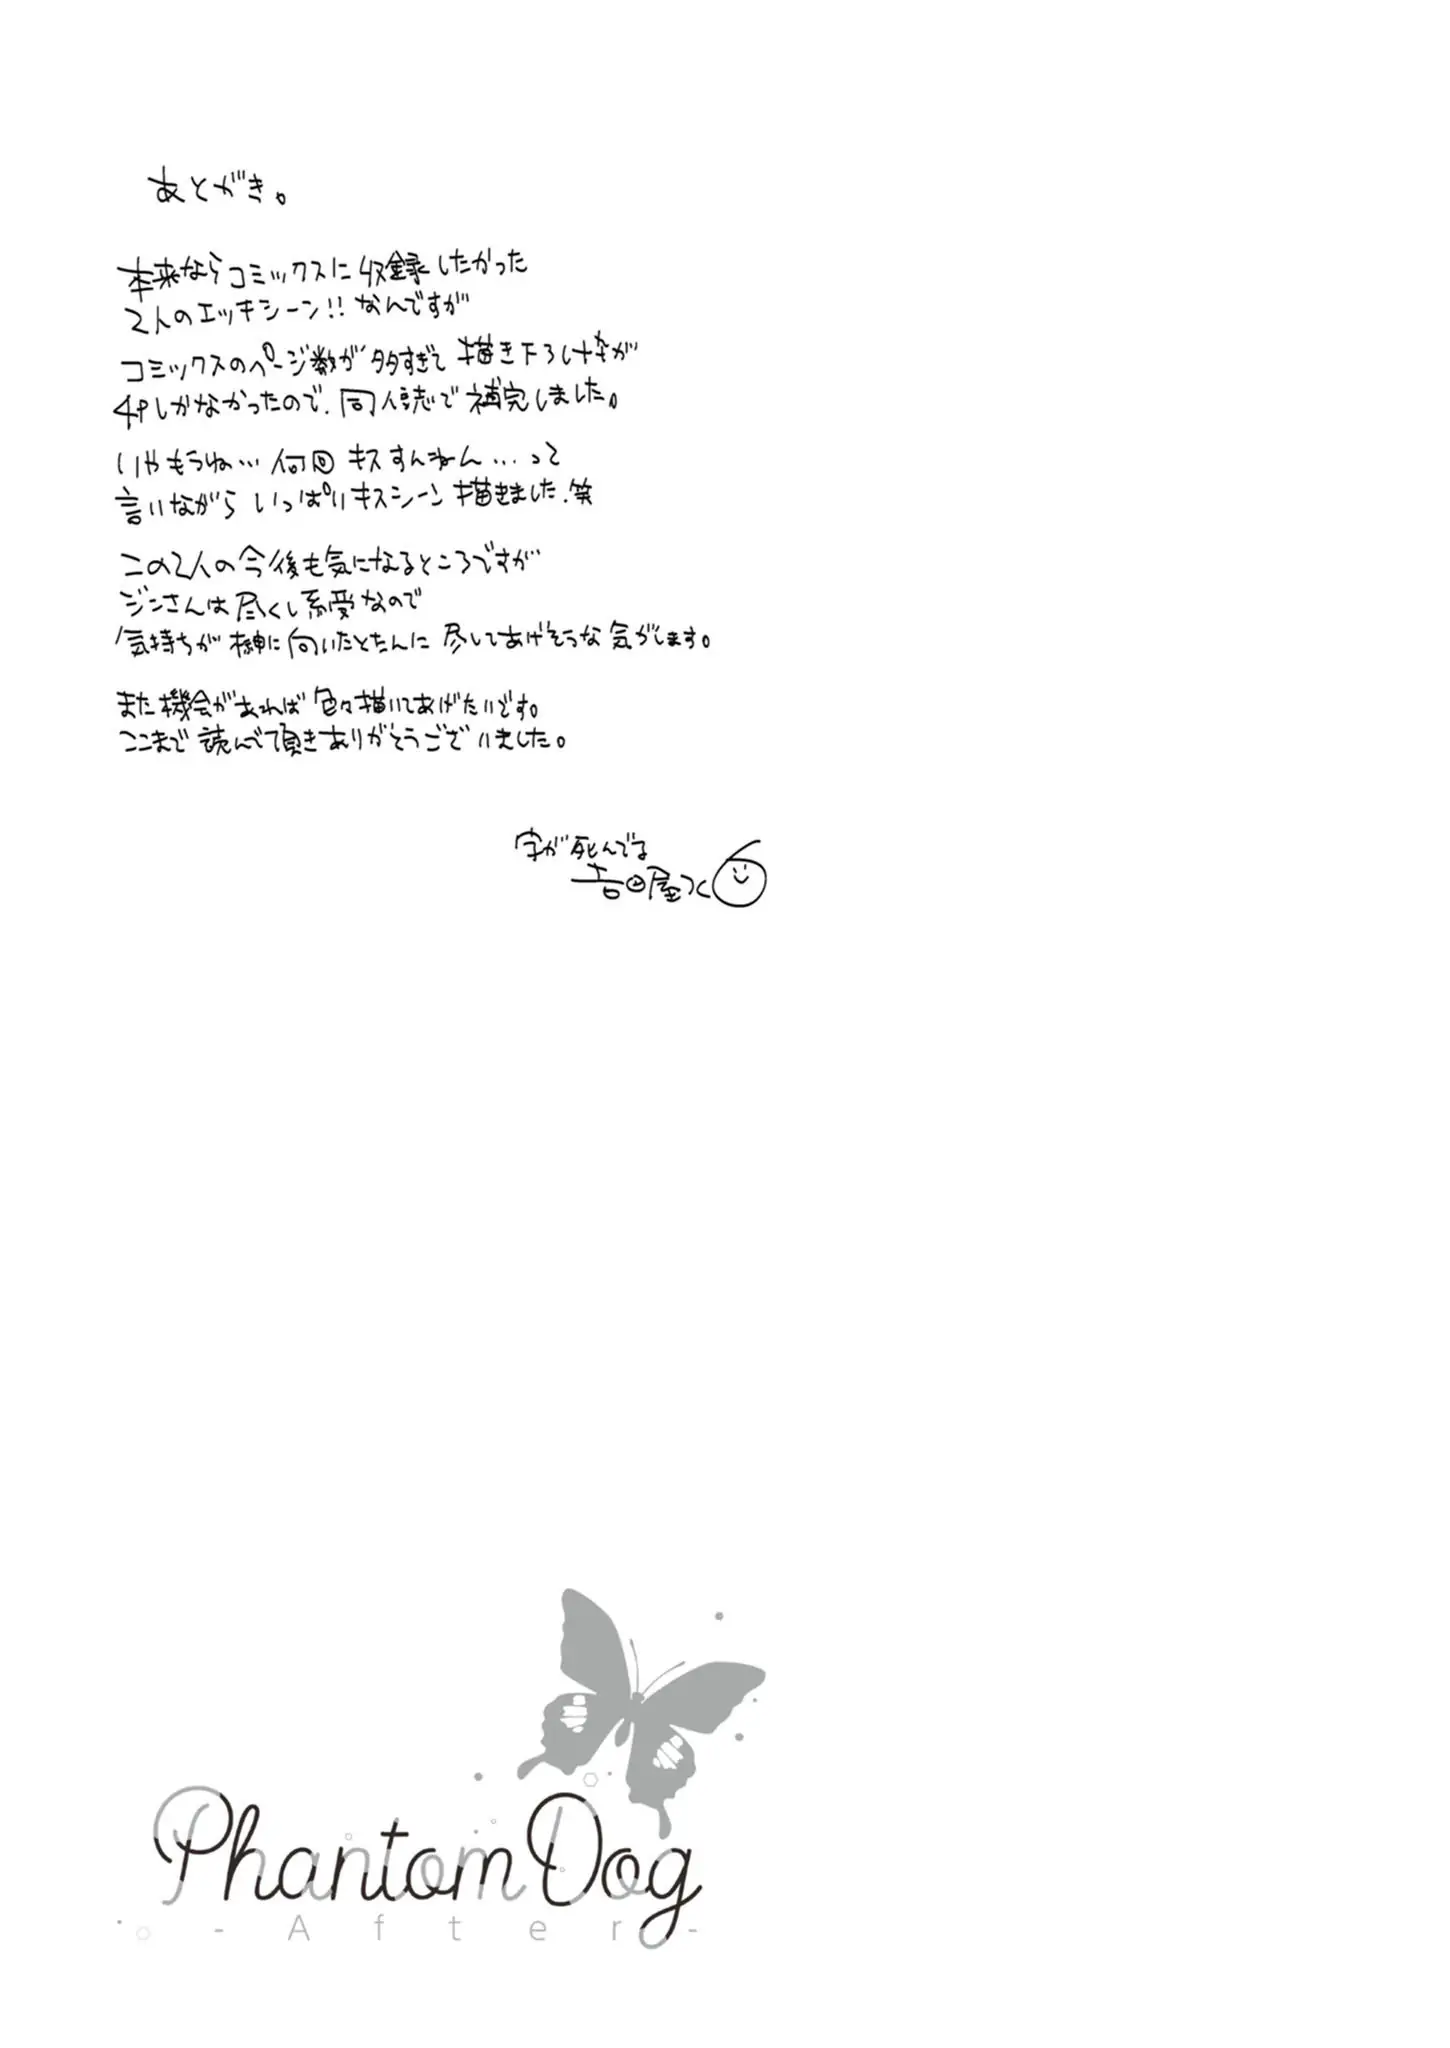 あとがき。
本来ならコミックスに収録したかった
2人のエッチシーン!!なんですが
コミックスのページ数が多すぎて描き下ろし枠が
4Pしかなかったので、同人誌で補完しました。
いやもうね…何回キスすんねん…って
言いながらいっぱいキスシーン描きました.笑
この2人の今後も気になるところですが
ジンさんは尽くし系受なので
気持ちが榊に向いたとたんに尽してあげそうな気がします。
また機会があれば色々描いてあげたいです。
ここまで読んで頂きありがとうございました。
字が死んでる
吉田屋ろく
Phantom Dog
-After-